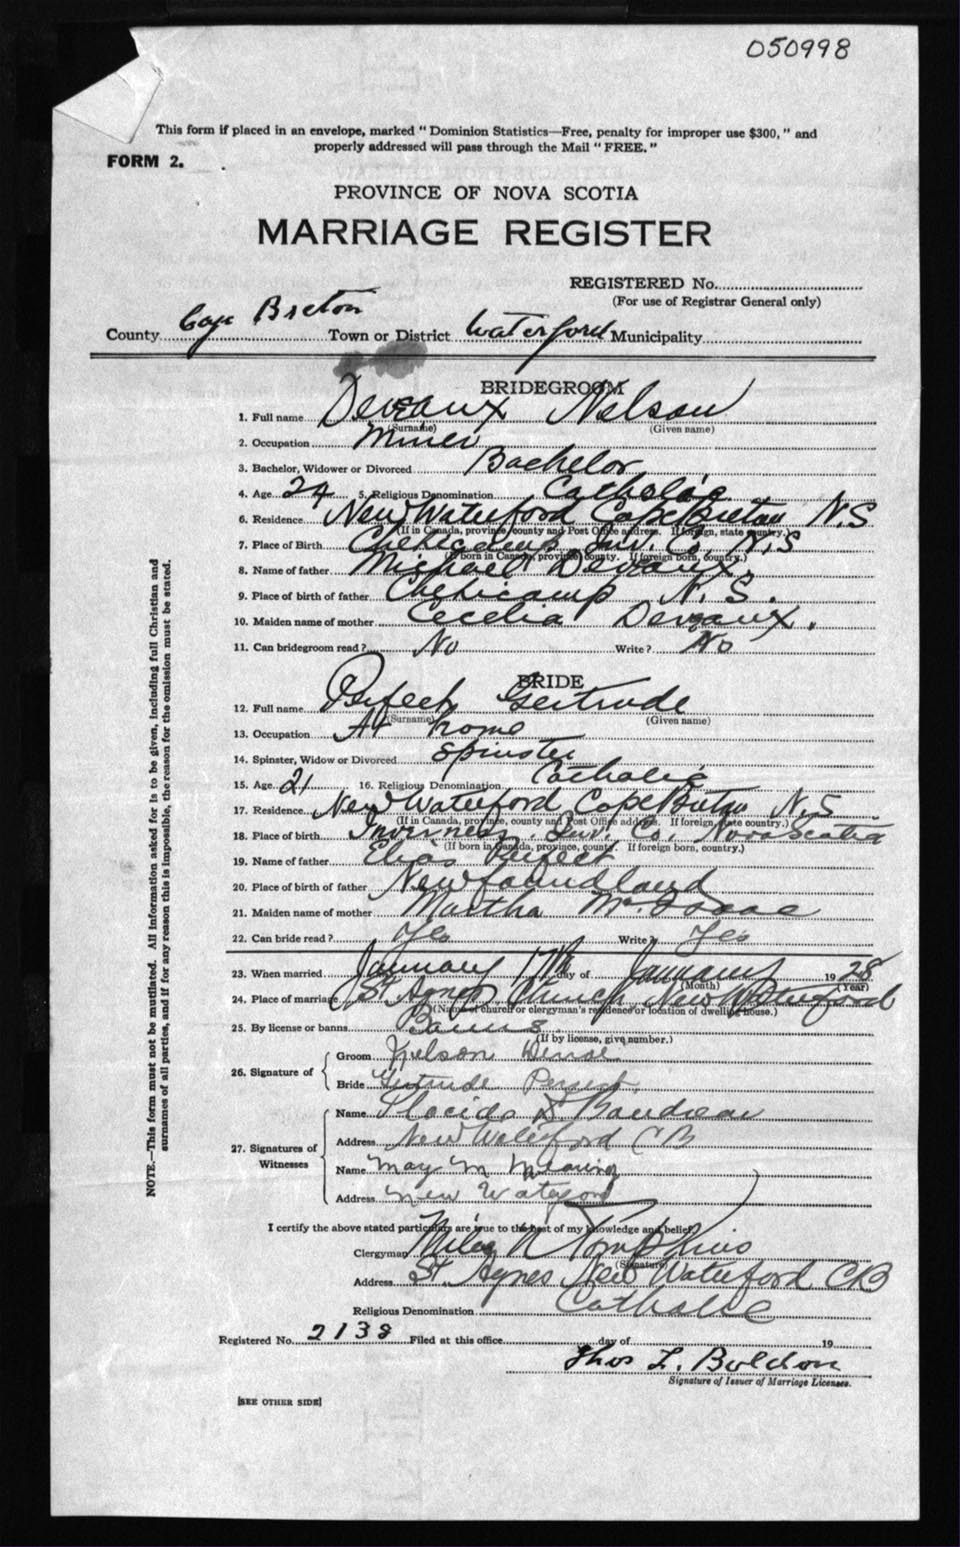 050998
This form if placed in an envelope, marked "Dominion Statistics—Free, penalty for improper use $300," and
properly addressed will pass through the Mail "FREE."
FORM 2.
PROVINCE OF NOVA SCOTIA
MARRIAGE REGISTER
REGISTERED No.
(For use of Registrar General only)
County Cape Breton Town or District Waterford Municipality
BRIDEGROOM
1. Full name Deveaux Nelson
(Surname) (Given name)
2. Occupation Miner
3. Bachelor, Widower or Divorced Bachelor
4. Age 24 5. Religious Denomination Catholic
6. Residence New Waterford Cape Breton N.S
(If in Canada, province, county and Post Office address. If foreign, state country.)
7. Place of Birth Cheticamp Inv. Co. N.S
(If born in Canada, province, county. If foreign born, country.)
8. Name of father Michael Deveaux.
9. Place of birth of father Cheticamp N.S.
10. Maiden name of mother Cecelia Deveaux.
11. Can bridegroom read? No Write? No
BRIDE
12. Full name Perfect Gertrude
(Surname) (Given name)
13. Occupation At home
14. Spinster, Widow or Divorced Spinster
15. Age 21 16. Religious Denomination Catholic
17. Residence New Waterford Cape Breton N.S.
(If in Canada, province, county and Post Office address. If foreign, state country.)
18. Place of birth Inverness Inv. Co. Nova Scotia
(If born in Canada, province, county. If foreign born, country.)
19. Name of father Elias Perfect
20. Place of birth of father Newfoundland
21. Maiden name of mother Martha McIsaac
22. Can bride read? Yes Write? Yes
23. When married January 17th day of January 1928
(Month) (Year)
24. Place of marriage St Agnes Church New Waterford
(Name of church or clergyman's residence or location of dwelling house.)
25. By license or banns Banns
(If by license, give number.)
26. Signature of
Groom Nelson
Bride Gertrude Perfect
27. Signatures of Witnesses
Name Placide S. Boudreau
Address New Waterford CB
Name May M
Address New Waterford
I certify the above stated particulars are true to the best of my knowledge and belief.
Clergyman Miles N Tompkins
(Signature)
Address St. Agnes New Waterford CB
Religious Denomination Catholic
Registered No. 2138 Filed at this office day of 19
Thos L. Boldon
Signature of Issuer of Marriage Licenses.
[SEE OTHER SIDE]
NOTE.—This form must not be mutilated. All information asked for is to be given, including full Christian and
surnames of all parties, and if for any reason this is impossible, the reason for the omission must be stated.